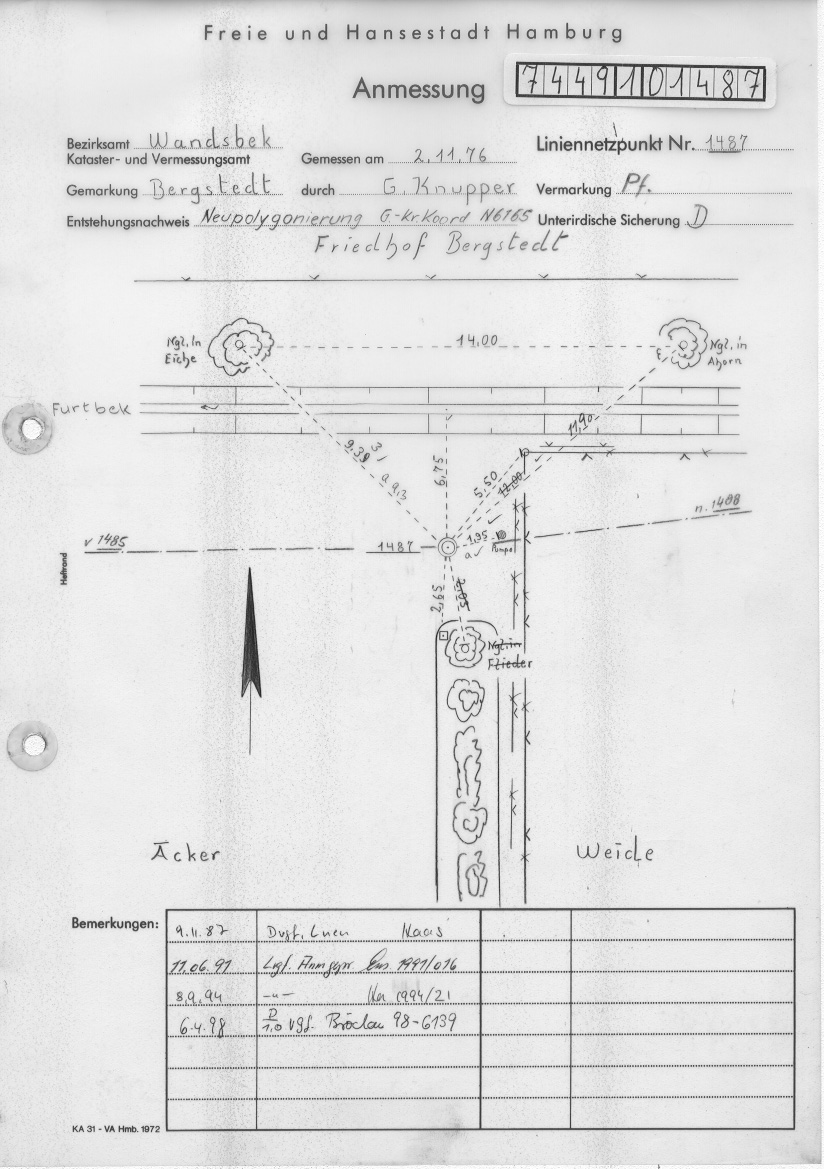 Freie und Hansestadt Hamburg
Anmessung 7449101487
Bezirksamt Wandsbek
Kataster- und Vermessungsamt
Gemessen am 2.11.76
Liniennetzpunkt Nr. 1487
Gemarkung Bergstedt
durch G. Knupper
Vermarkung Pf.
Entstehungsnachweis Neupolygonierung G-Kr.Koord N6165
Unterirdische Sicherung D
Friedhof Bergstedt
Ngl. in
Eiche
14,00
Ngl. in
Ahorn
Furtbek
11,90
9,39
31
a 9,3
6,75
5,50
12,00
n. 1488
v 1485
1487
1,95
a
Pumpe
Heftrand
2,65
2,05
Ngl. in
Flieder
Äcker
Weide
Bemerkungen:
9.11.87 Haas
11.06.91 1991/016
8.9.94 -"- 1994/21
6.4.98 D 1,0 vgf. 98-6139
KA 31 - VA Hmb. 1972